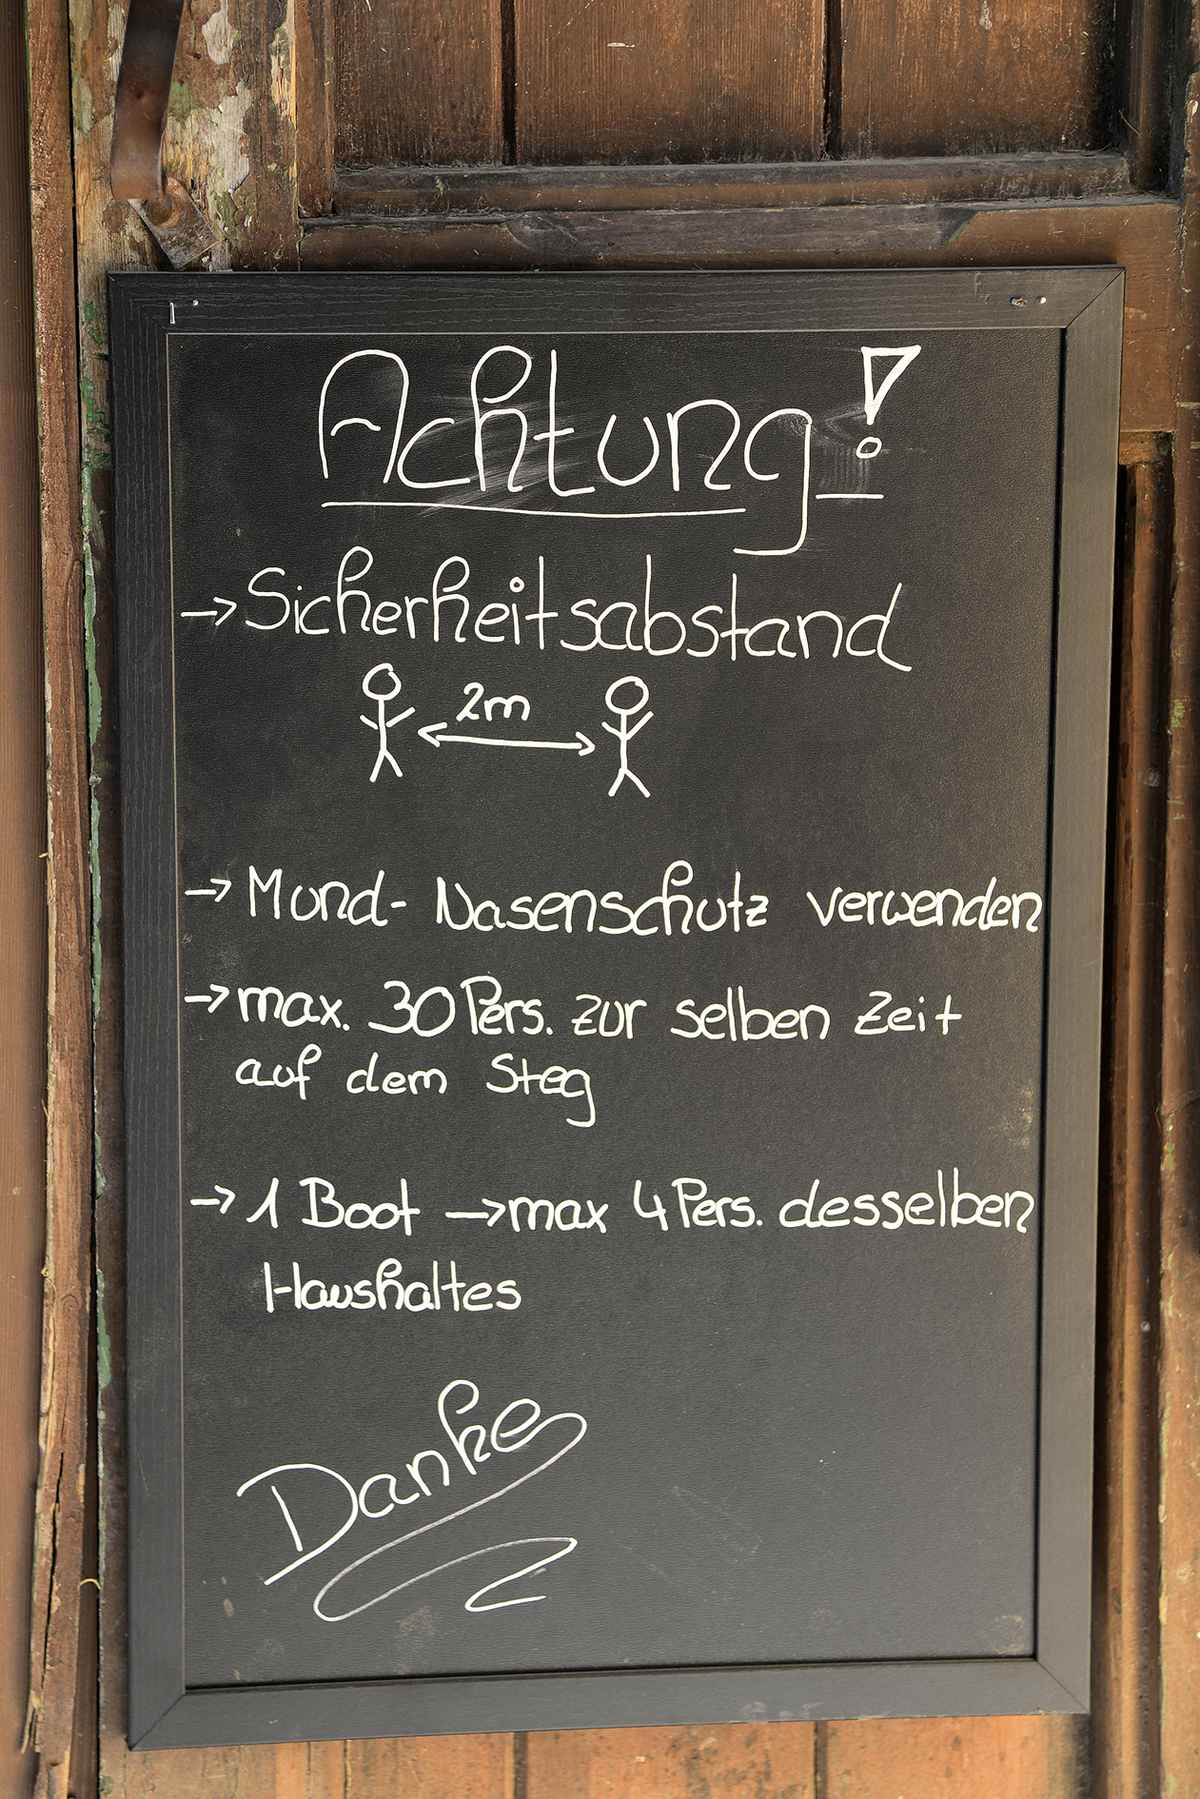 Achtung!
→ Sicherheitsabstand
2m
→ Mund- Nasenschutz verwenden
→ max. 30 Pers. zur selben Zeit
auf dem Steg
→ 1 Boot → max 4 Pers. desselben
Haushaltes
Danke